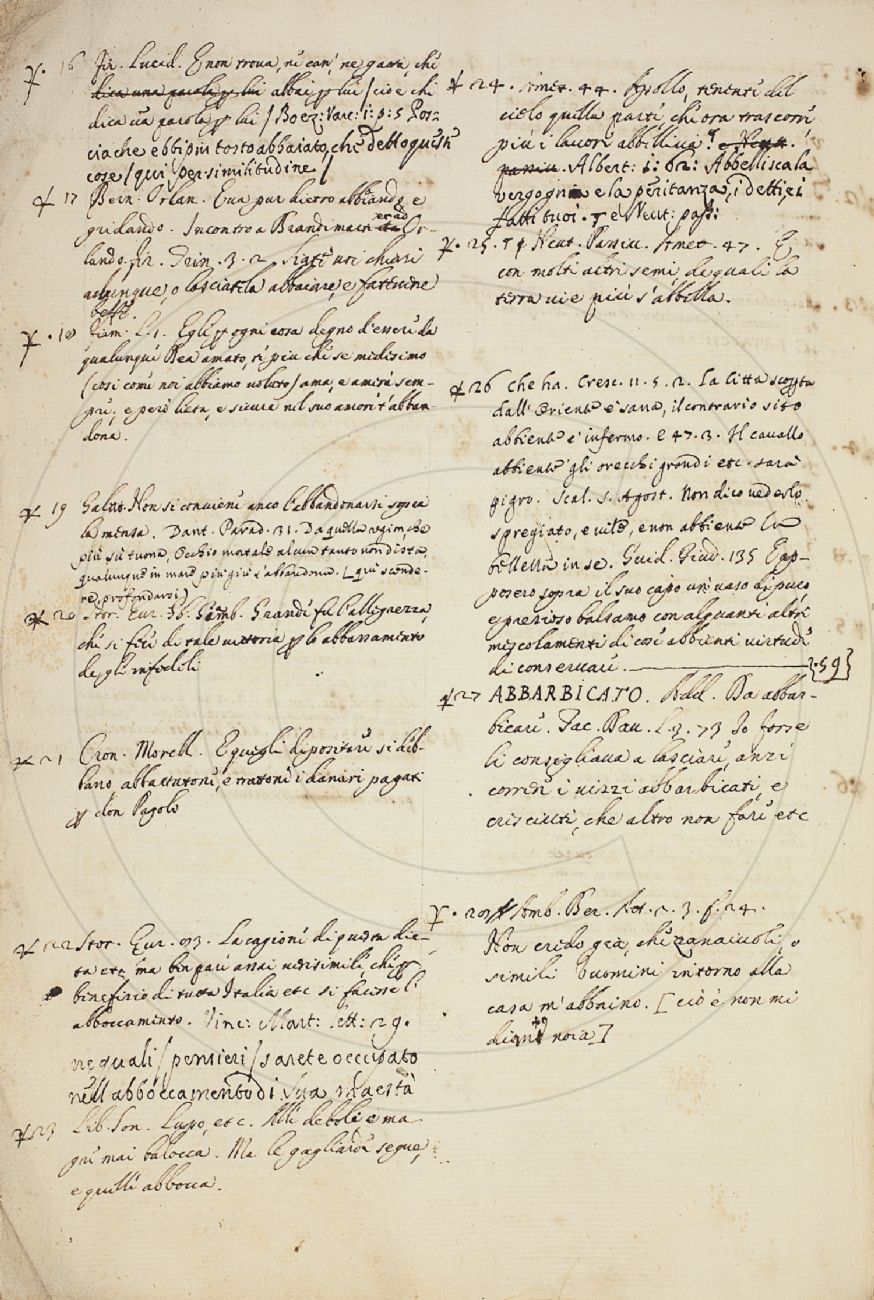 16 Fir. Lucid. E non trova, nè can, ne gatta, chi
dica una parola p lui abbai p lui / cioè chi
dica ũa parola p lui / Boez: Varc: 1: p: 5
cia che ebbi piu tosto abbaiato, che detto queste
cose / qui per similitudine /
17 Bern. Orlan. Eva pur dietro abbiando e
gridando. Incontro a Brandimarte ed Or-
lando. Fir. Trin. 3. 2.
adunque, o lasciatela abbaiare, e fatevene
beffe.
18 Fiam. L. 1. Egli p ogni cosa degno d'essere da
qualunque Dea amato, te piu che se medesimo
(così come noi abbiamo voluto) ama, e amerà sem-
pre; e però lieta, e sicura nel suo amore t'abban-
dona.
19 Galat. Non si conviene anco l'abbandonarsi sopra
la mensa. Dant. Parad. 31. Da quella region, che
più sù tuona, Occhio mortale alcun tanto non dista,
qualunque in mare più giù s'abbandona. [qui scende-
re, profondarsi)
20 Stor. Eur. Grandi fu l'allegrezza,
che si fece di tale vittoria p lo abbassamento
degli infedeli
21 Cron. Morell. E quegli dipositari si deb-
bano, abbattutone, e trattone i danari pagati
p don Pagolo
22 Stor. Eur. 93. La cagione di questa die-
ta etc. ma ben pare assai verisimile, che p
beneficio di tutta Italia etc si facesse l'
abboccamento. Vinc: Mart: lett: 29.
ne quali / pensieri / sarete occupato
nell abboccamento di Sua Maestà
23 Lib. Son. Lupo, etc. Alli deboli e ma-
gri mai balocca. Ma le gagliarde segue,
e quelle abbocca.
24. Amet. 44. Apollo, tenente del
cielo quella parte, che ora trascorri
più i lavori abbelliva.
Albert: 1: 62: Abbellisca la
vergogna e la penitanza, i detti, ei
fatti tuoi. e Neut: pass:
25. Neut. Passiv. Amet. 47. E
con molti altri semi, de quali la
terra vie più s'abbella.
26 Che ha. Cresc. 11. 5. 2. La Città scoperta
dall'Oriente è sana, il contrario sito
abbiente è infermo. E 47. 3. Il cavallo
abbiente gli orecchi grandi etc. sarà
pigro. Scal. S. Agost. Non dico vederlo
spregiato, e vile, e non abbiente
bellezza in se. Guid. Giud. 135 E ap-
posero sopra il suo capo un vaso di puro
e prezioso balsamo con alquanti altri
mescolamenti di cose abbienti virtude
di conservare. {59}
27 ABBARBICATO. Add. Da abbar-
bicare. Fac. Dav. L. 2. 73 Io forse
li consigliava a lasciare, anzi
correr i vizzi abbarbicati, e
cresciuti, che altro non fare etc
28 Amb. Ber. At. 3.
Non credo già, che zanaiuoli, o
simili buomini intorno alla
casa m'abbaino. [ciò è non mi
diano noia]